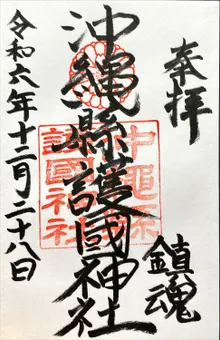 奉拝
沖縄縣護國神社
鎮魂
令和六年十二月二十八日
沖縄縣
護國神社